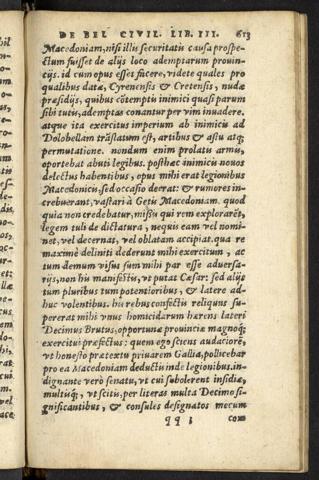 DE BEL CIVIL. LIB. III. 613
Macedoniam, nisi illis securitatis causa prospe-
ctum fuisset de alijs loco ademptarum prouin-
cijs. id cum opus esset facere, videte quales pro
qualibus datæ, Cyrenensis & Cretensis, nudæ
præsidijs, quibus cõtemptis inimici quasi parum
sibi tutis, ademptas conantur per vim inuadere.
atque ita exercitus imperium ab inimicis ad
Dolobellam trãslatum est, artibus & astu atq;
permutatione. nondum enim prolatis armis,
oportebat abuti legibus. posthæc inimicis nouos
delectus habentibus, opus mihi erat legionibus
Macedonicis, sed occasio deerat: & rumores in-
crebuerant, vastari à Getis Macedoniam. quod
quia non credebatur, missis qui rem explorarẽt,
legem tuli de dictatura, nequis eam vel nomi-
net, vel decernat, vel oblatam accipiat. qua re
maximè deliniti dederunt mihi exercitum, ac
tum demum visus sum mihi par esse aduersa-
rijs, non his manifestis, vt putat Cæsar: sed alijs
tum pluribus tum potentioribus, & latere ad-
huc volentibus. his rebus confectis reliquus su-
pererat mihi vnus homicidarum hærens lateri
Decimus Brutus, opportunæ prouinciæ magnoq;
exercitui præfectus: quem ego sciens audaciorẽ,
vt honesto prætextu priuarem Gallia, pollicebar
pro ea Macedoniam deductis inde legionibus. in-
dignante verò senatu, vt cui subolerent insidiæ,
multisq;, vt scitis, per literas multa Decimo si-
gnificantibus, & consules designatos mecum
qq 3 com